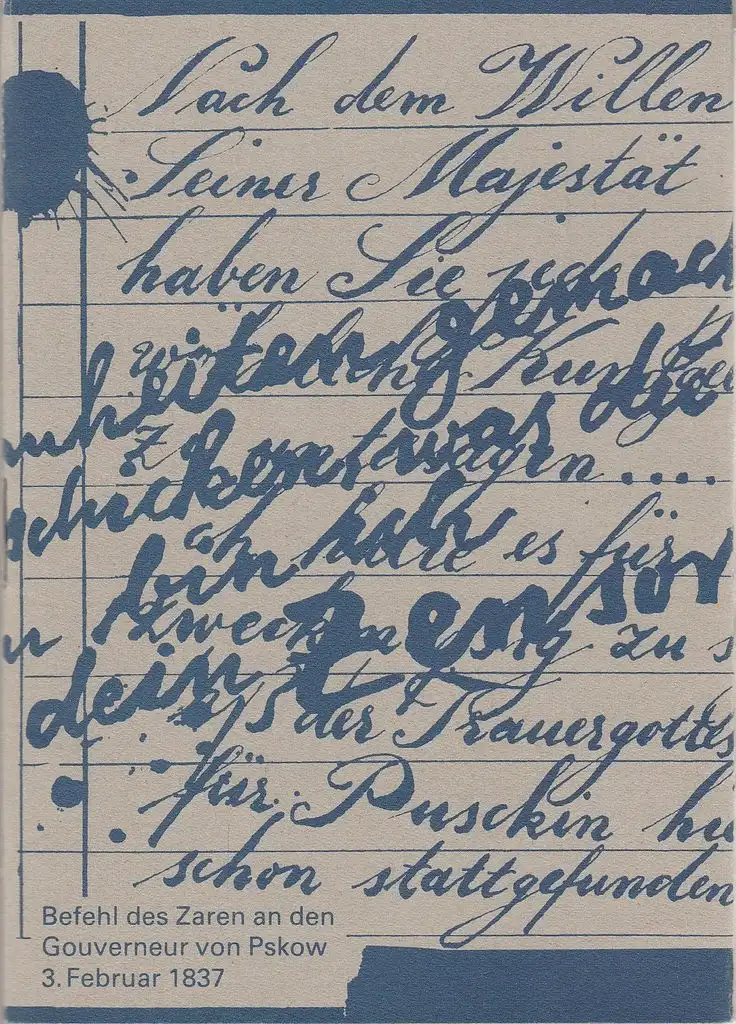 Nach dem Willen
Seiner Majestät
haben Sie jede
gemach
schicken, was die
halte es für
bin ich
zu s
dein zensor
der Trauergottes
für Pusckin hie
schon stattgefunden
Befehl des Zaren an den
Gouverneur von Pskow
3. Februar 1837